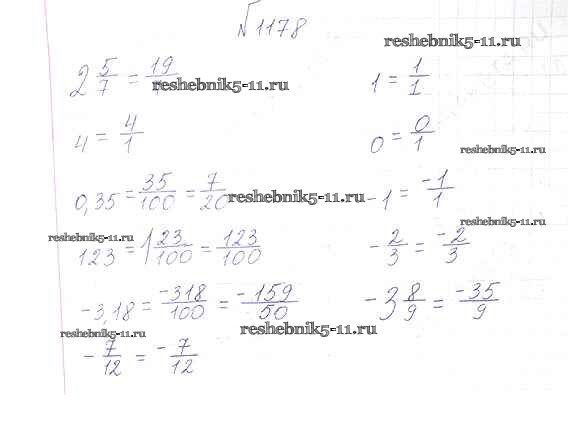 №1178
reshebnik5-11.ru
2 5/7 = 19/ reshebnik5-11.ru
1 = 1/1
4 = 4/1
0 = 0/1
reshebnik5-11.ru
0,35 = 35/100 = 7/20
reshebnik5-11.ru
-1 = -1/1
reshebnik5-11.ru
reshebnik5-11.ru
123 = 1 23/100 = 123/100
- 2/3 = -2/3
-3,18 = -318/100 = -159/50
-3 8/9 = -35/9
reshebnik5-11.ru
reshebnik5-11.ru
- 7/12 = -7/12